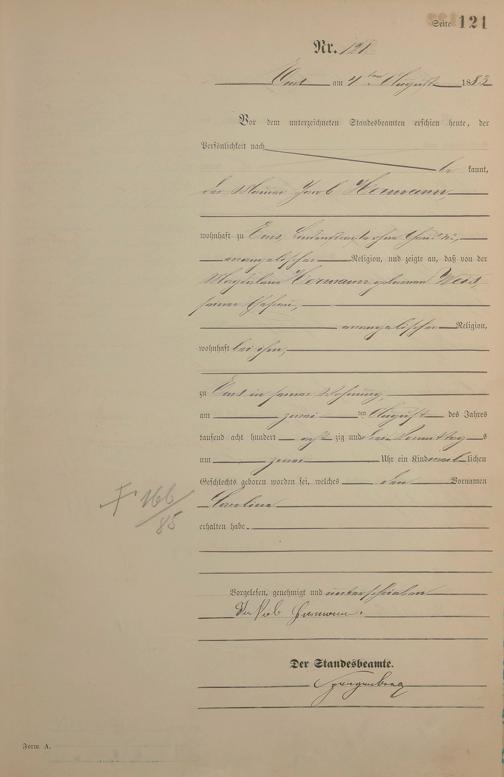 Seite 121
Nr. 121
Ems am 4ten August 1883
Vor dem unterzeichneten Standesbeamten erschien heute, der
Persönlichkeit nach
be kannt,
der Maurer Jacob Hermann,
wohnhaft zu Ems,
evangelischer Religion, und zeigte an, daß von der
Magdalena Hermann geborenen
seiner Ehefrau,
evangelischer Religion,
wohnhaft bei ihm,
zu Ems in seiner Wohnung,
am zwei ten August des Jahres
tausend acht hundert acht zig und drei Vormittag s
um zwei Uhr ein Kind weib lichen
Geschlechts geboren worden sei, welches den Vornamen
Karolina
erhalten habe.
† 166/85
Vorgelesen, genehmigt und unterschrieben
Jakob Hermann
Der Standesbeamte.
Spangenberg
Form A.